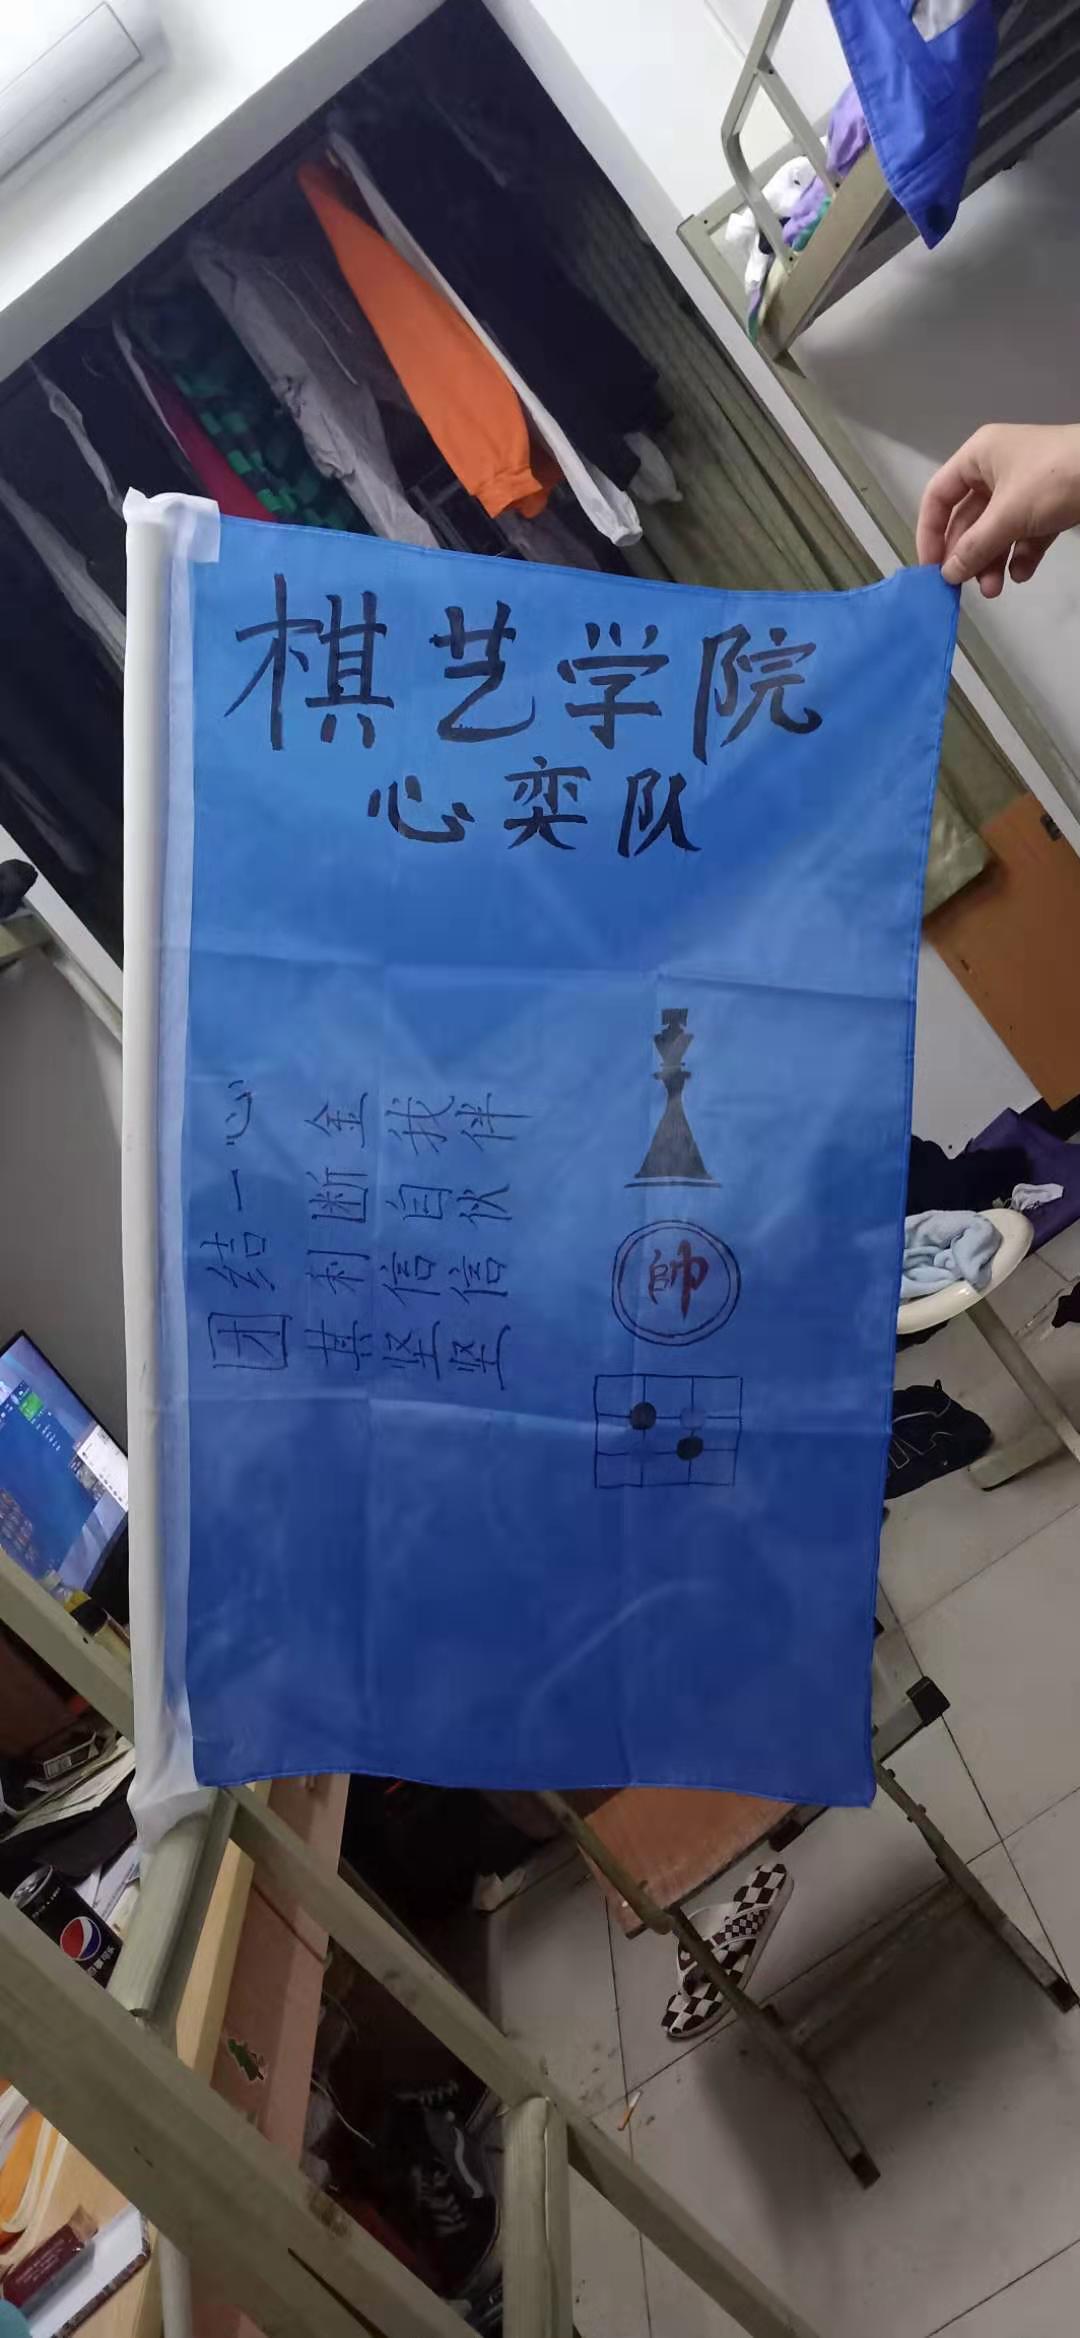 棋艺学院
心奕队
团结一心
其利断金
坚信自我
坚信伙伴
帥